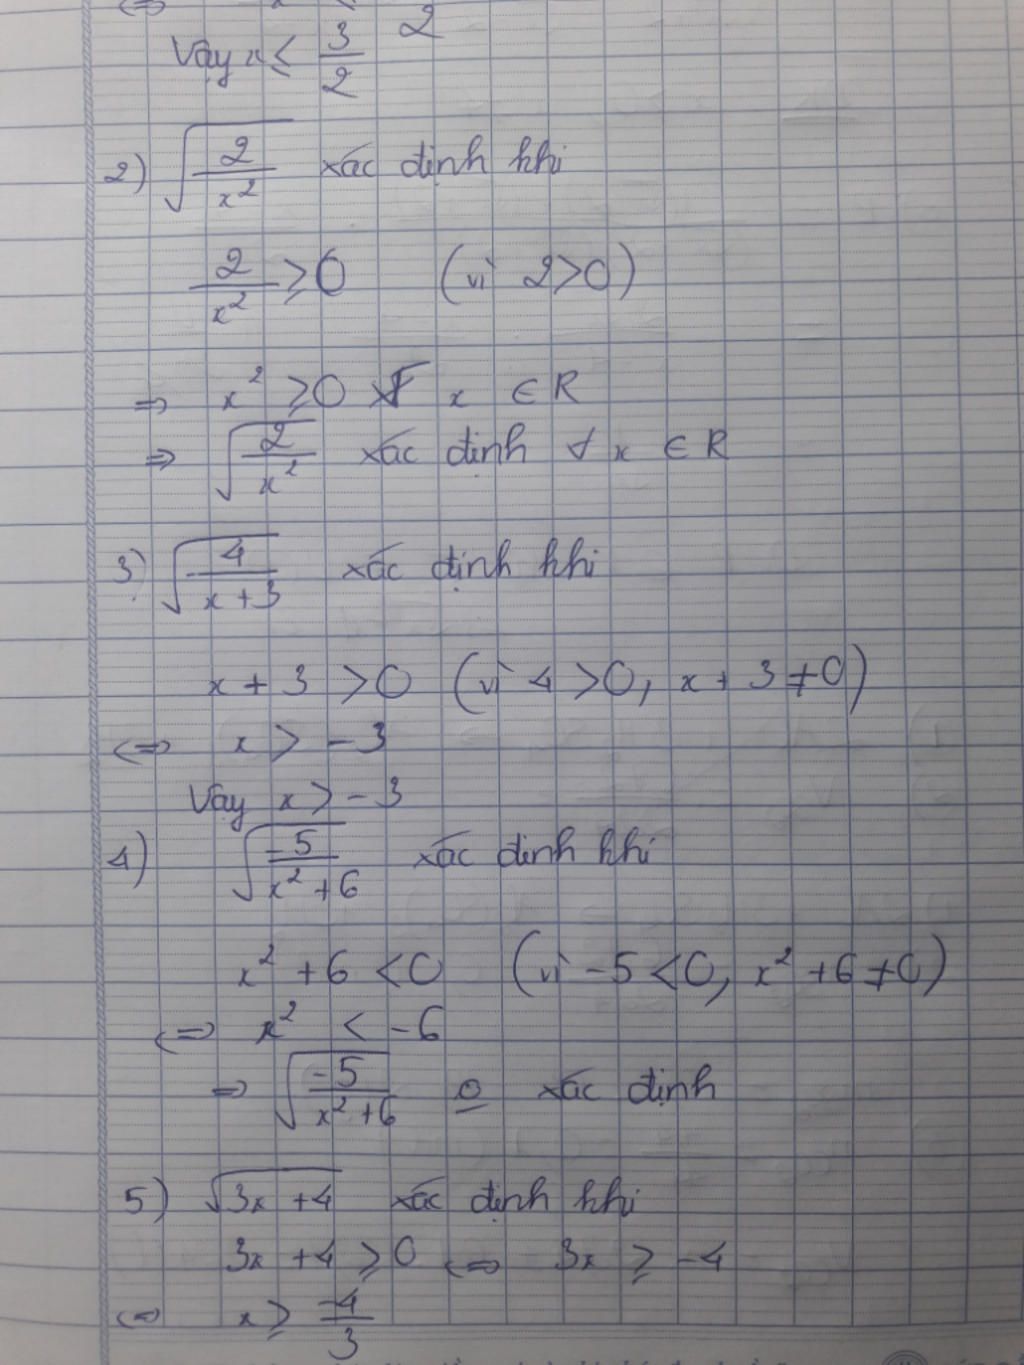 Vậy x ≤ 3/2
2) √(2/x²) xác định khi
2/x² ≥ 0 (vì 2>0)
⇒ x² ≥ 0 ∀ x ∈ R
⇒ √(2/x²) xác định ∀ x ∈ R
3) √(4/(x+3)) xác định khi
x + 3 > 0 (vì 4 > 0, x + 3 ≠ 0)
⇔ x > -3
Vậy x > -3
4) √(-5/(x²+6)) xác định khi
x² + 6 < 0 (vì -5 < 0, x² + 6 ≠ 0)
⇔ x² < -6
⇒ √(-5/(x²+6)) o xác định
5) √(3x + 4) xác định khi
3x + 4 ≥ 0 ⇔ 3x ≥ -4
⇔ x ≥ -4/3